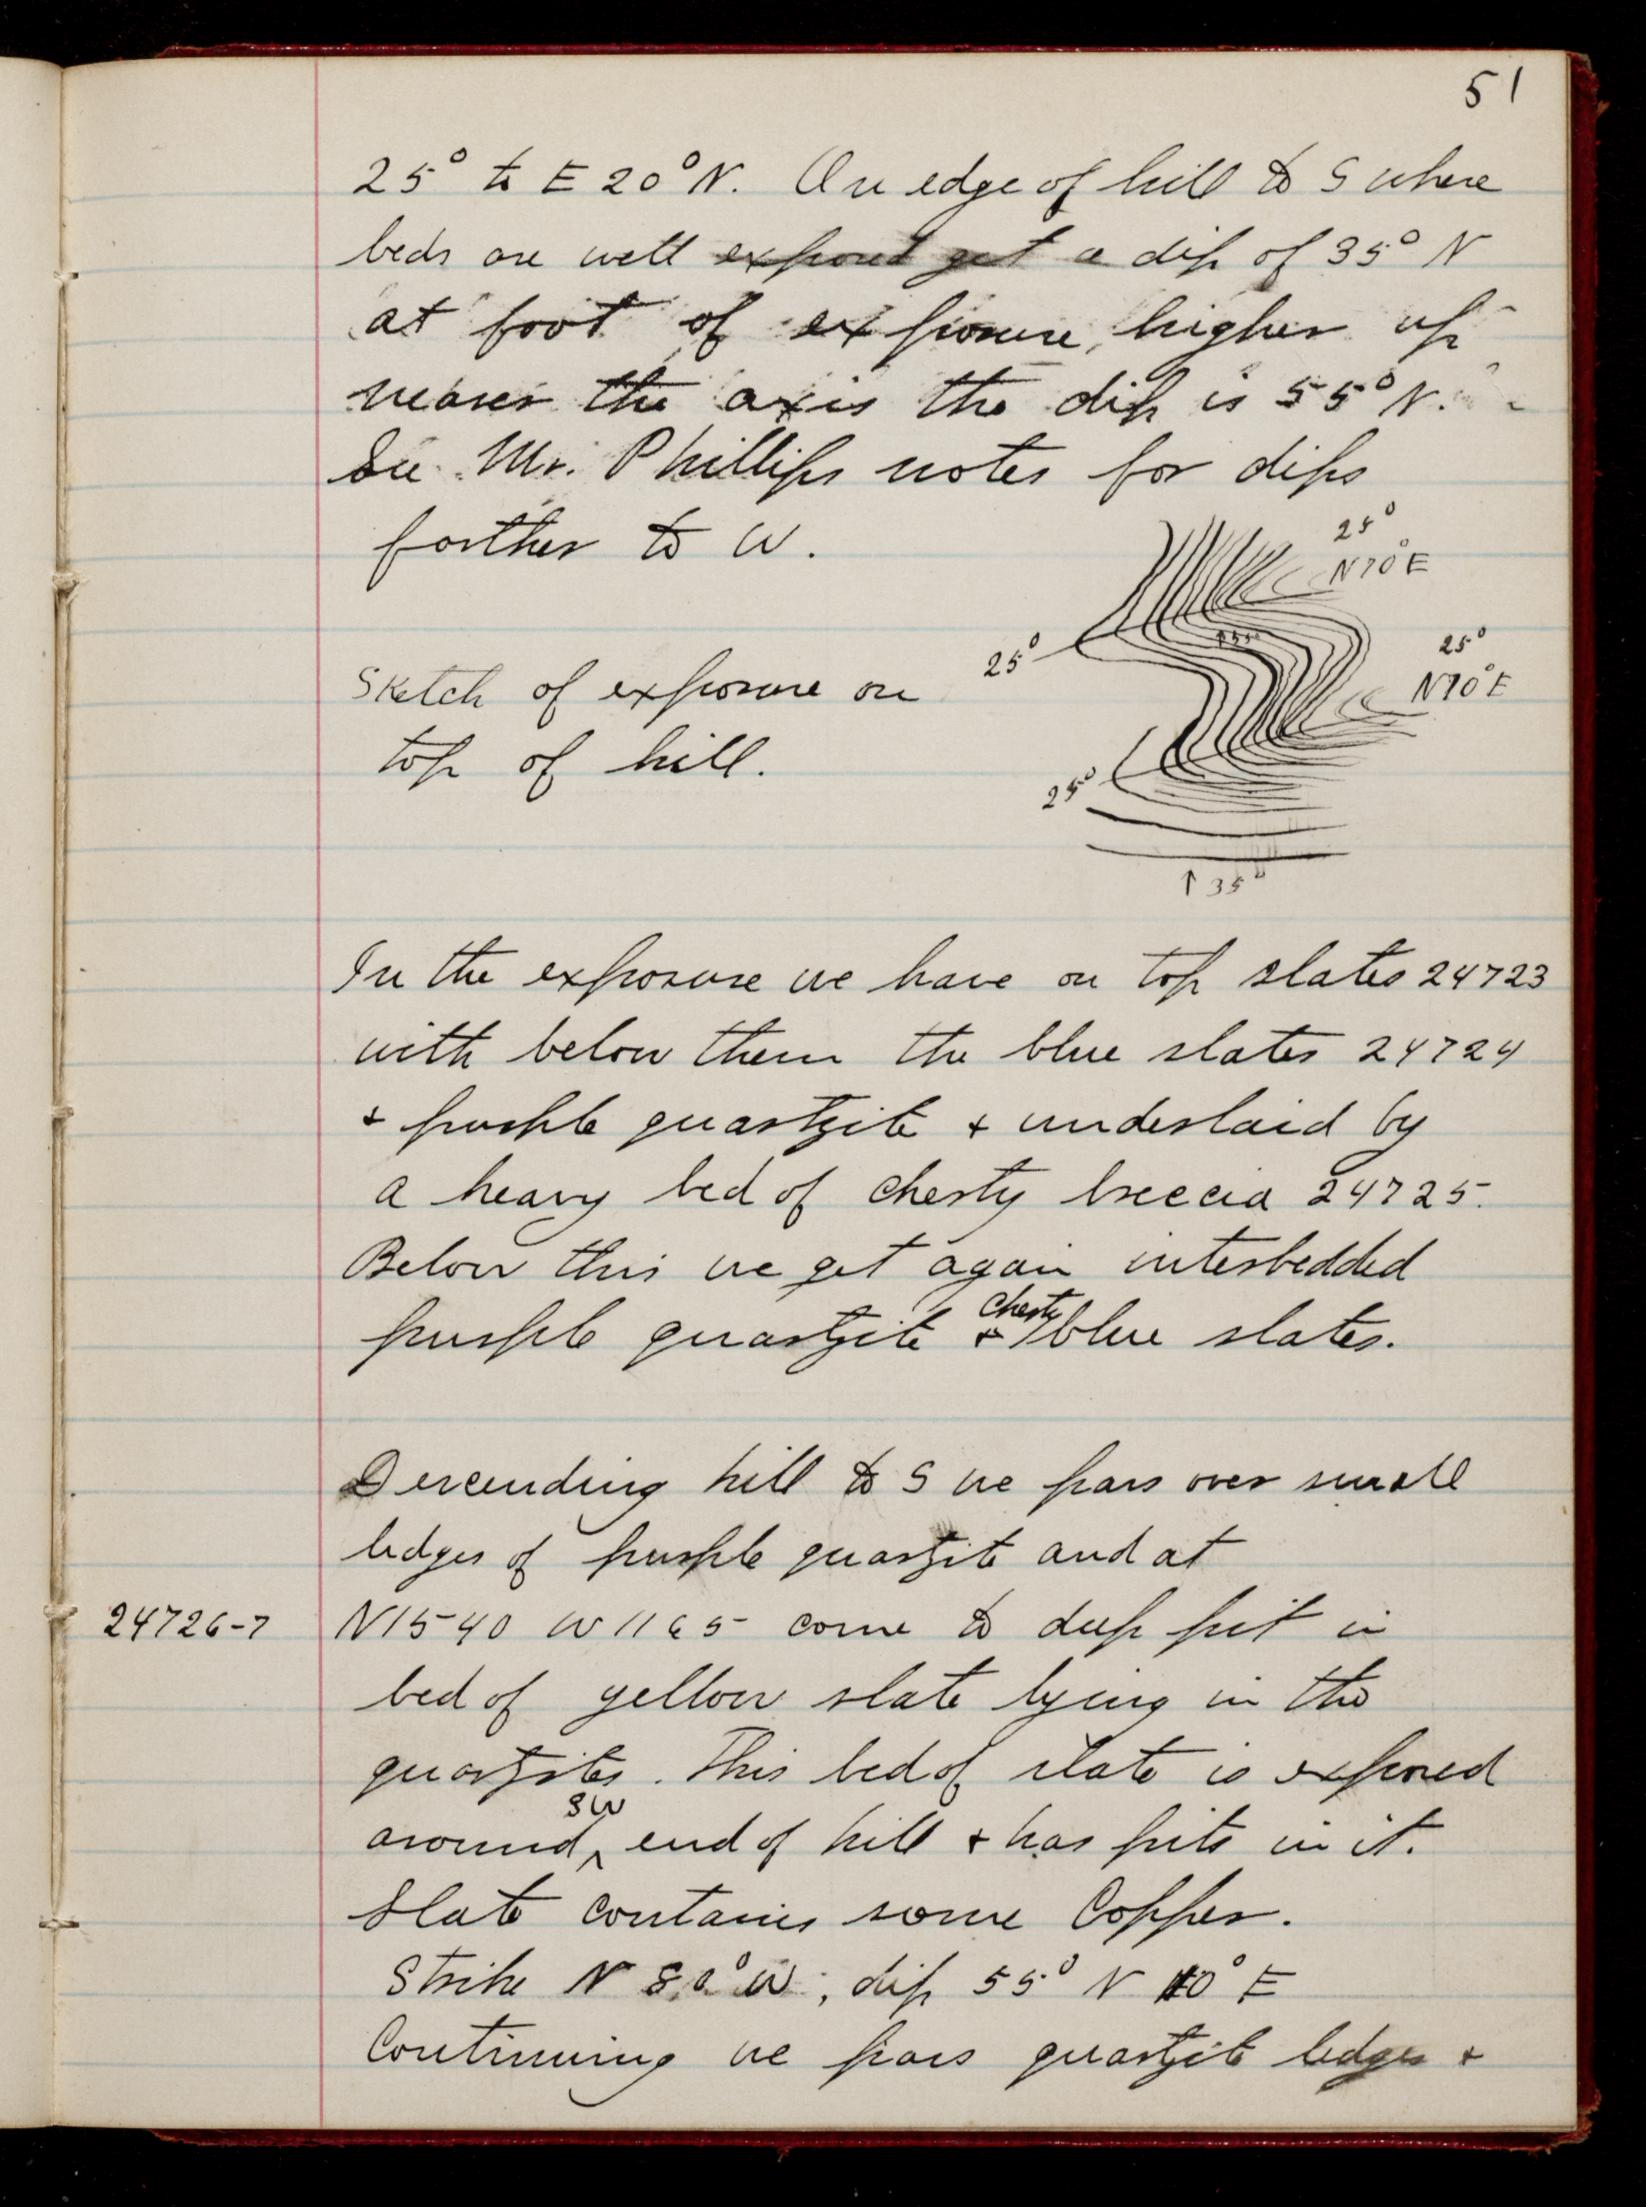 51
25° to E 20° N. On edge of hill to S where
beds are well exposed get a dip of 35° N
at foot of exposure, higher up
nearer the axis the dip is 55° N.
See Mr. Phillips notes for dips
farther to W.
25°
N70°E
↑55°
25°
25°
N70°E
Sketch of exposure on
top of hill.
25°
↑ 35°
In the exposure we have on top slates 24723
with below them the blue slates 24724
+ purple quartzite + underlaid by
a heavy bed of cherty breccia 24725.
Below this we get again interbedded
purple quartzite + cherty blue slates.
Descending hill to S we pass over small
ledges of purple quartzite and at
24726-7 N1540 W1165 come to deep pit in
bed of yellow slate lying in the
quartzites. This bed of slate is exposed
around SW end of hill + has pits in it.
Slate contains some Copper.
Strike N 80° W; dip 55° N 10° E
Continuing we pass quartzite ledges +